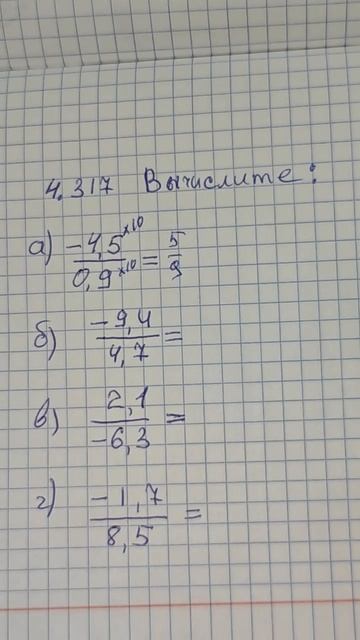 4.317 Вычислите:
а) -4,5 ×10 / 0,9 ×10 = 5/9
б) -9,4 / 4,7 =
в) 2,1 / -6,3 =
г) -1,7 / 8,5 =